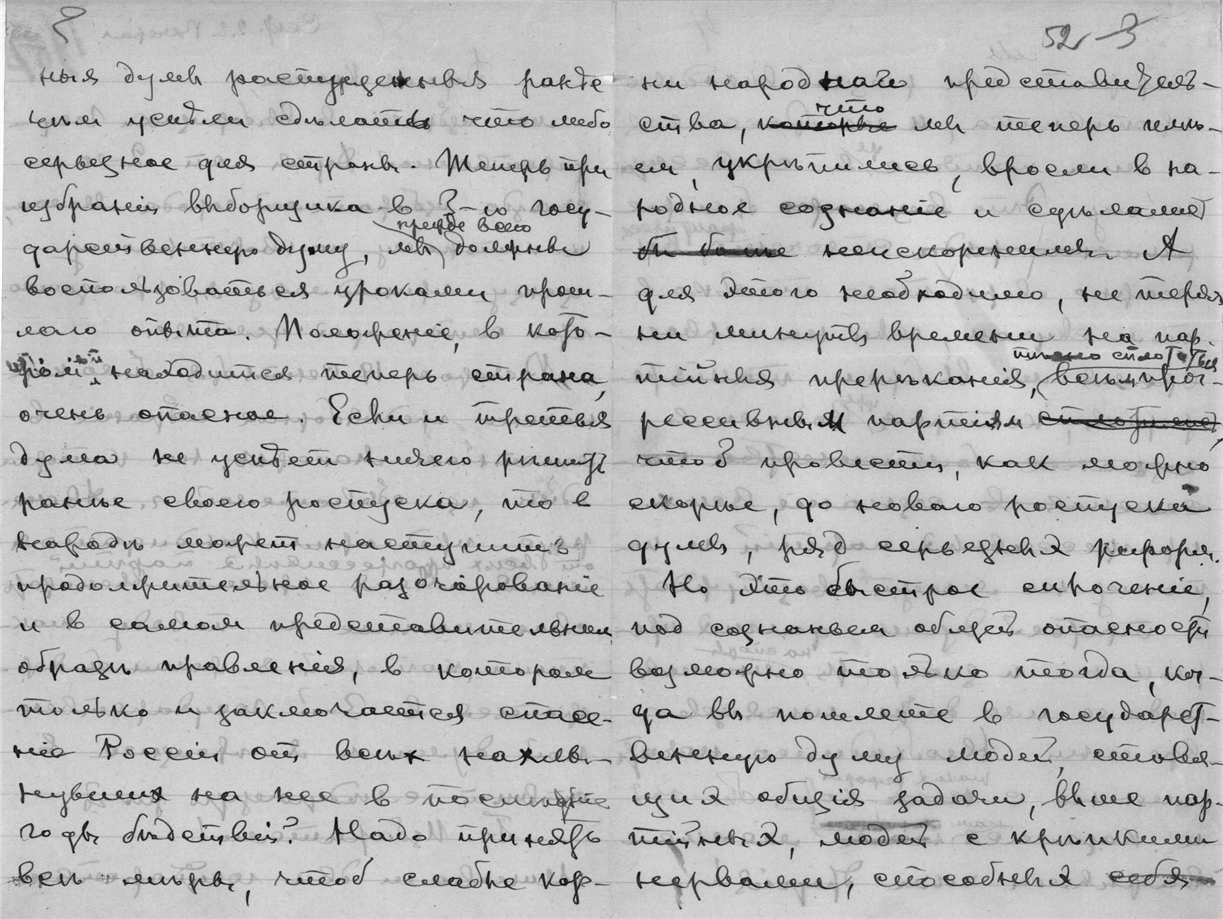 52 3
ныя думы распущенныя раньше
чѣм успѣли сдѣлать что либо
серьезное для страны. Теперь при
избраніи выборщика в 3-ю госу-
прежде всего
дарственную думу, мы должны
воспользоваться уроками прош-
лаго опыта. Положеніе, в кото-
ром находится теперь страна,
очень опасное. Если и третья
дума не успѣет ничего рѣшить
раньше своего роспуска, то в
народѣ может наступить
продолжительное разочарованіе
и в самом представительном
образѣ правленія, в котором
только и заключается спасе-
ніе Россіи от всѣх нахлы-
нувших на нее в послѣдніе
годы бѣдствій. Надо принять
всѣ мѣры, чтоб слабые кор-
ни народнаго представитель-
что
ства, которые мы теперь имѣ-
ем, укрѣпились, вросли в на-
родное сознаніе и сдѣлались
неискоренимы. А
для этого необходимо, не теряя
ни минуты времени на пар-
тѣсно сплотиться
тійныя пререканія, всѣм прог-
рессивным партіям сплотиться,
чтоб провести, как можно
скорѣе, до новаго роспуска
думы, ряд серьезных реформ.
Но это быстрое сплоченіе,
под сознаньем общей опасности
возможно только тогда, ког-
да вы пошлете в государст-
венную думу людей, ставя-
щих общія задачи, выше пар-
тійных, людей с крѣпкими
нервами, способных себя